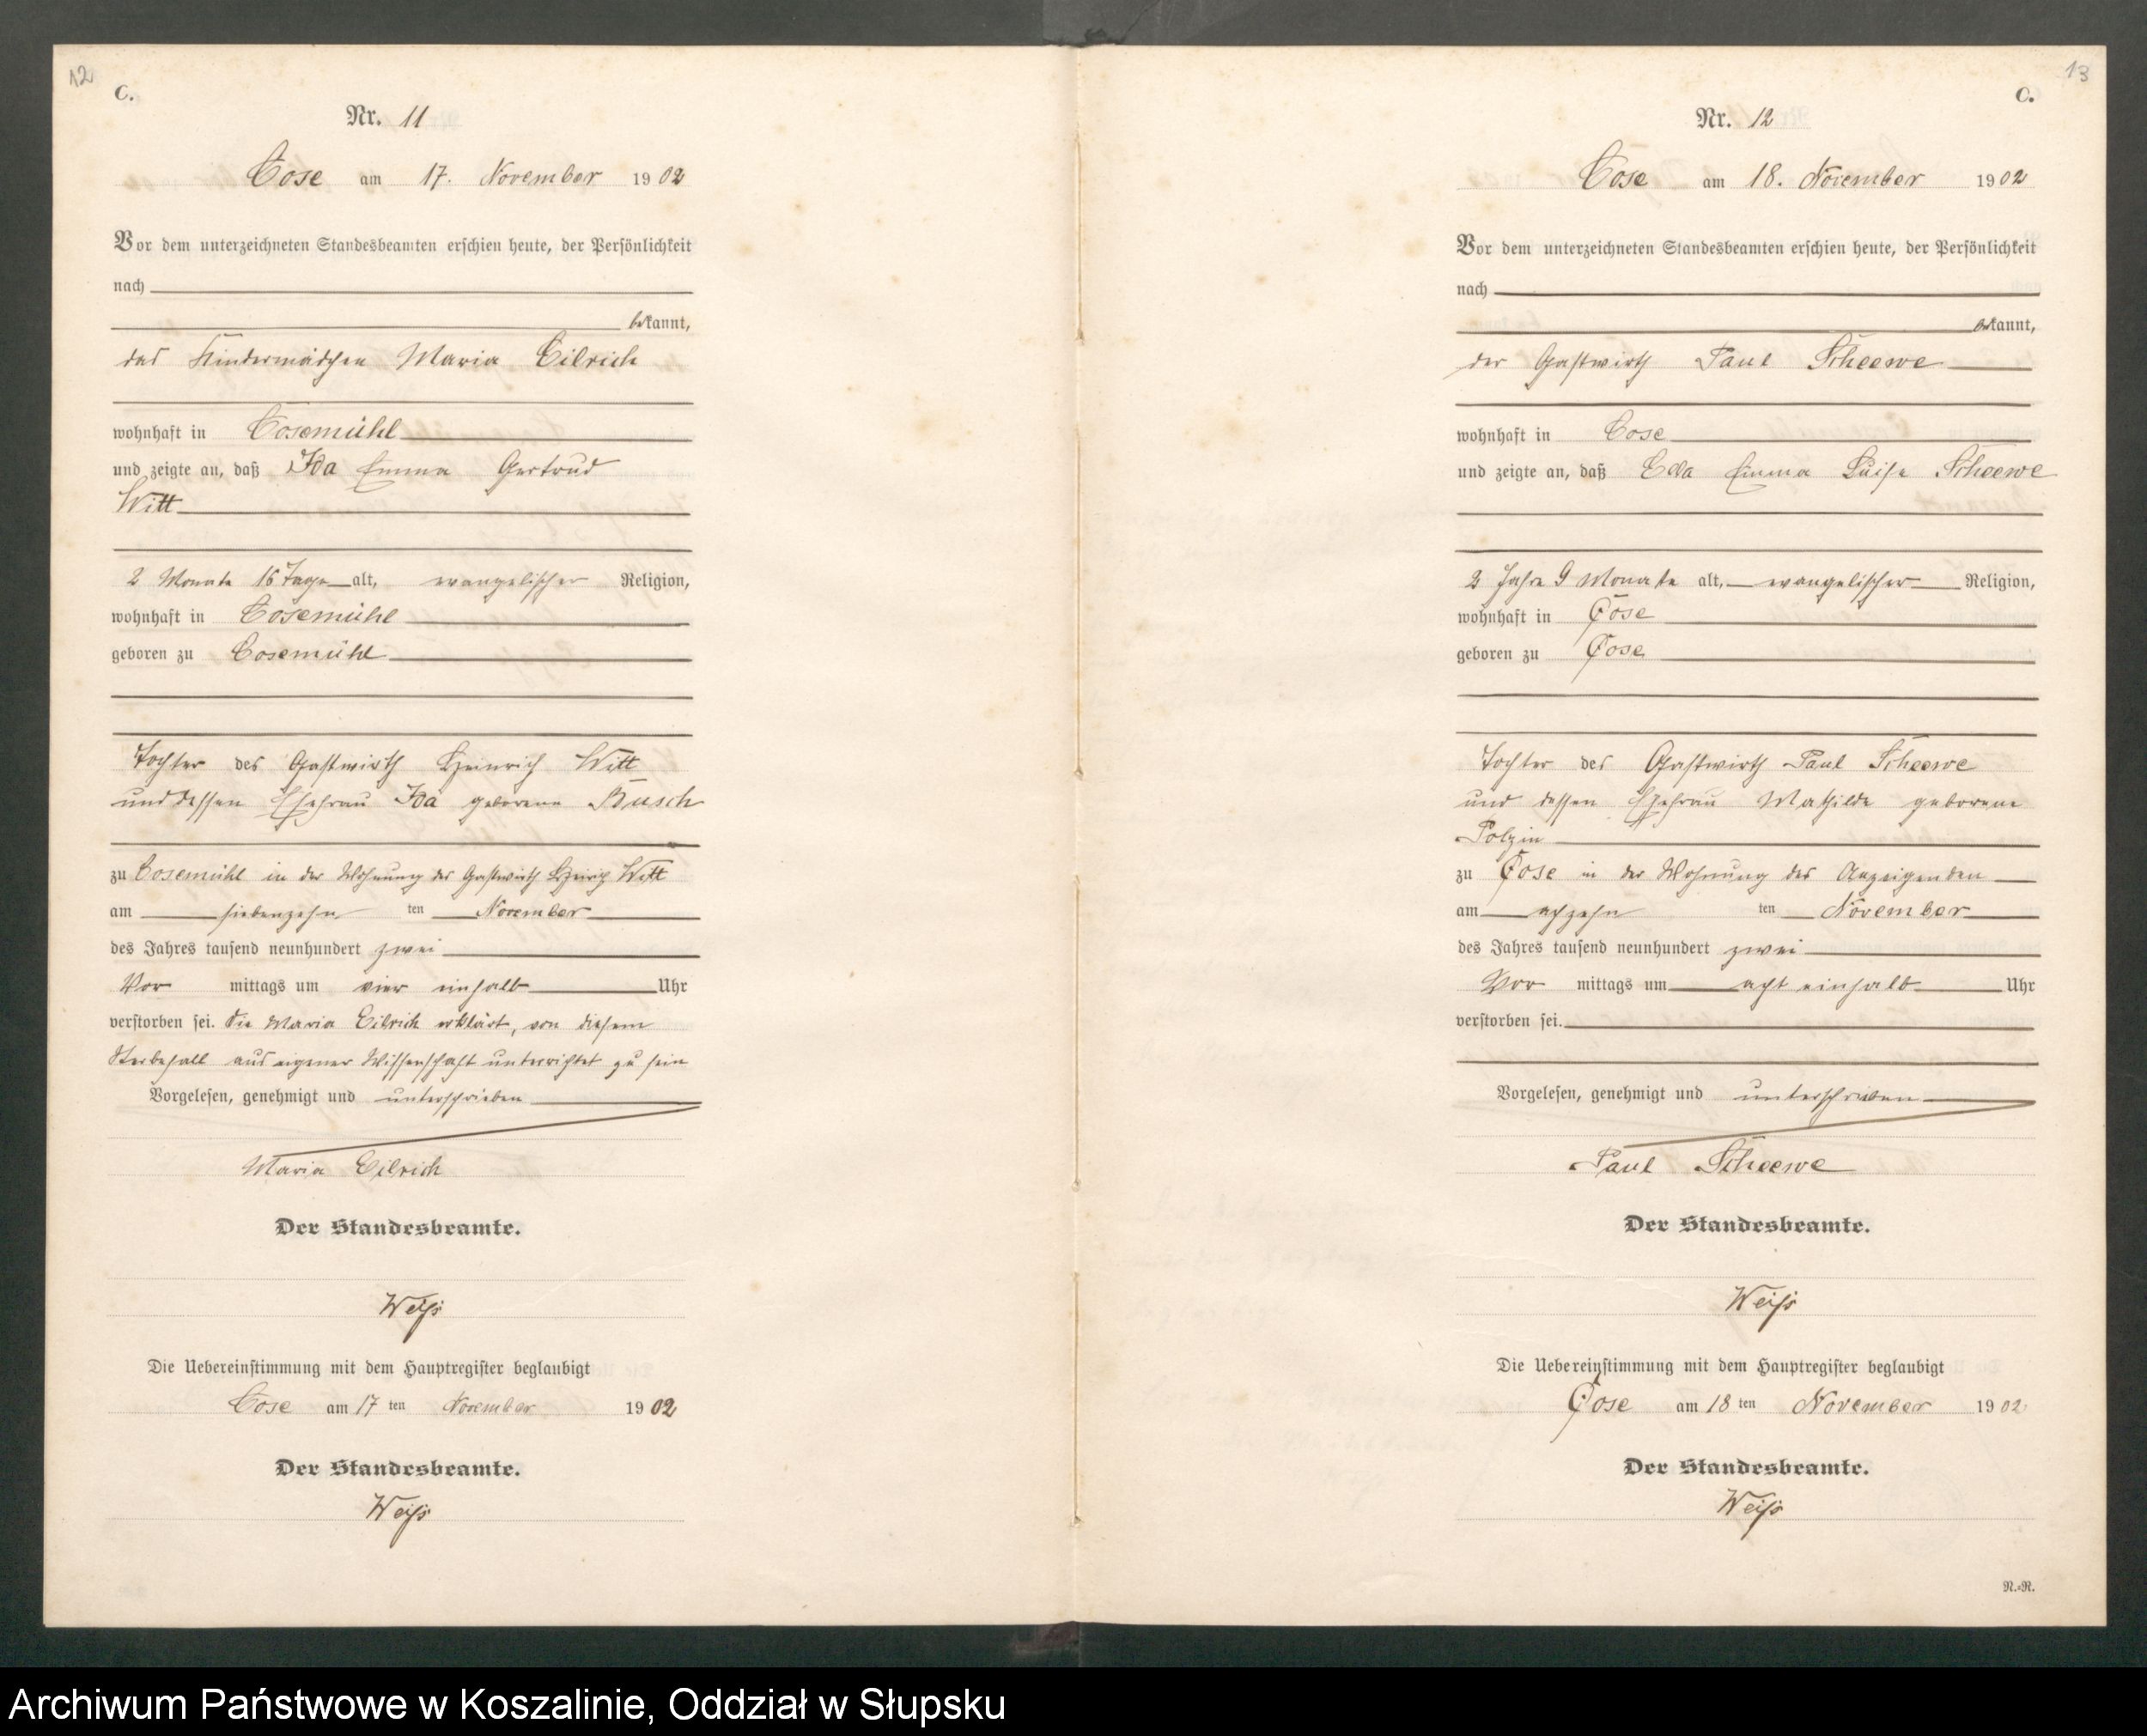 12
C.
Nr. 11
Cose am 17. November 1902
Vor dem unterzeichneten Standesbeamten erschien heute, der Persönlichkeit
nach
bekannt,
das Kindermädchen Maria Eilrich
wohnhaft in Cosemühl
und zeigte an, daß Ida Emma Gertrud
Witt
2 Monate 16 Tage alt, evangelischer Religion,
wohnhaft in Cosemühl
geboren zu Cosemühl
Tochter des Gastwirth Heinrich Witt
und dessen Ehefrau Ida geborene Busch
zu Cosemühl in der Wohnung des Gastwirth Heinrich Witt
am siebenzehn ten November
des Jahres tausend neunhundert zwei
Vor mittags um vier einhalb Uhr
verstorben sei. Die Maria Eilrich erklärt, von diesem
Sterbefall aus eigener Wissenschaft unterrichtet zu sein
Vorgelesen, genehmigt und unterschrieben
Maria Eilrich
Der Standesbeamte.
Weiß
Die Uebereinstimmung mit dem Hauptregister beglaubigt
Cose am 17 ten November 1902
Der Standesbeamte.
Weiß
13
C.
Nr. 12
Cose am 18. November 1902
Vor dem unterzeichneten Standesbeamten erschien heute, der Persönlichkeit
nach
bekannt,
der Gastwirth Paul Scheewe
wohnhaft in Cose
und zeigte an, daß Ella Emma Luise Scheewe
2 Jahre 9 Monate alt, evangelischer Religion,
wohnhaft in Cose
geboren zu Cose
Tochter des Gastwirth Paul Scheewe
und dessen Ehefrau Mathilde geborene
Polzin
zu Cose in der Wohnung des Anzeigenden
am achzehn ten November
des Jahres tausend neunhundert zwei
Vor mittags um acht einhalb Uhr
verstorben sei.
Vorgelesen, genehmigt und unterschrieben
Paul Scheewe
Der Standesbeamte.
Weiß
Die Uebereinstimmung mit dem Hauptregister beglaubigt
Cose am 18 ten November 1902
Der Standesbeamte.
Weiß
N.=N.
Archiwum Państwowe w Koszalinie, Oddział w Słupsku